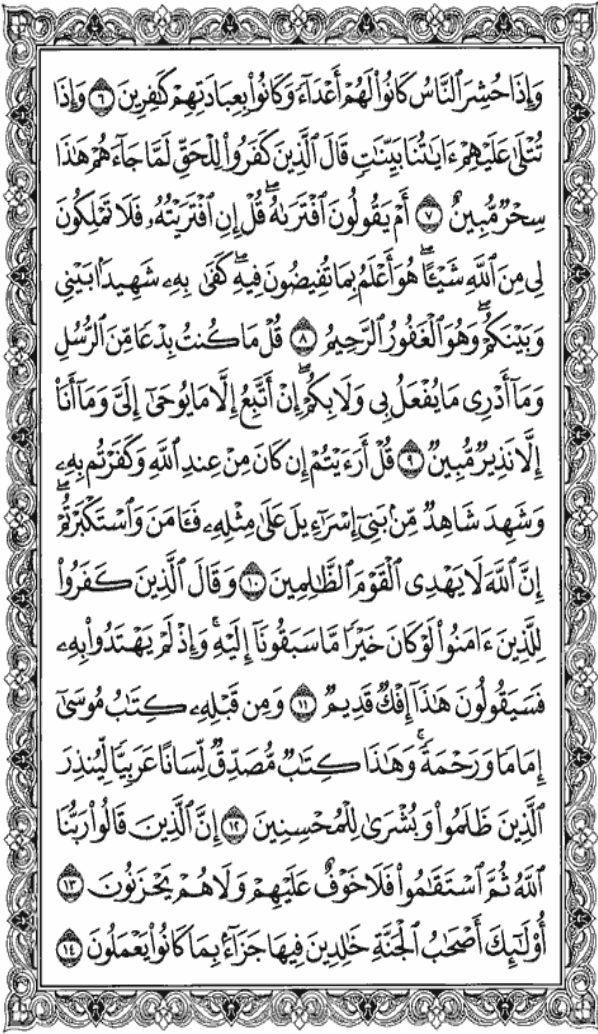 وَإِذَا حُشِرَ ٱلنَّاسُ كَانُوا۟ لَهُمْ أَعْدَآءً وَكَانُوا۟ بِعِبَادَتِهِمْ كَٰفِرِينَ ٦ وَإِذَا
تُتْلَىٰ عَلَيْهِمْ ءَايَٰتُنَا بَيِّنَٰتٍ قَالَ ٱلَّذِينَ كَفَرُوا۟ لِلْحَقِّ لَمَّا جَآءَهُمْ هَٰذَا
سِحْرٌ مُّبِينٌ ٧ أَمْ يَقُولُونَ ٱفْتَرَىٰهُ ۖ قُلْ إِنِ ٱفْتَرَيْتُهُۥ فَلَا تَمْلِكُونَ
لِى مِنَ ٱللَّهِ شَيْـًٔا ۖ هُوَ أَعْلَمُ بِمَا تُفِيضُونَ فِيهِ ۖ كَفَىٰ بِهِۦ شَهِيدًۢا بَيْنِى
وَبَيْنَكُمْ ۖ وَهُوَ ٱلْغَفُورُ ٱلرَّحِيمُ ٨ قُلْ مَا كُنتُ بِدْعًا مِّنَ ٱلرُّسُلِ
وَمَآ أَدْرِى مَا يُفْعَلُ بِى وَلَا بِكُمْ ۖ إِنْ أَتَّبِعُ إِلَّا مَا يُوحَىٰٓ إِلَىَّ وَمَآ أَنَا۠
إِلَّا نَذِيرٌ مُّبِينٌ ٩ قُلْ أَرَءَيْتُمْ إِن كَانَ مِنْ عِندِ ٱللَّهِ وَكَفَرْتُم بِهِۦ
وَشَهِدَ شَاهِدٌ مِّنۢ بَنِىٓ إِسْرَٰٓءِيلَ عَلَىٰ مِثْلِهِۦ فَـَٔامَنَ وَٱسْتَكْبَرْتُمْ ۖ
إِنَّ ٱللَّهَ لَا يَهْدِى ٱلْقَوْمَ ٱلظَّٰلِمِينَ ١٠ وَقَالَ ٱلَّذِينَ كَفَرُوا۟
لِلَّذِينَ ءَامَنُوا۟ لَوْ كَانَ خَيْرًا مَّا سَبَقُونَآ إِلَيْهِ ۚ وَإِذْ لَمْ يَهْتَدُوا۟ بِهِۦ
فَسَيَقُولُونَ هَٰذَآ إِفْكٌ قَدِيمٌ ١١ وَمِن قَبْلِهِۦ كِتَٰبُ مُوسَىٰٓ
إِمَامًا وَرَحْمَةً ۚ وَهَٰذَا كِتَٰبٌ مُّصَدِّقٌ لِّسَانًا عَرَبِيًّا لِّيُنذِرَ
ٱلَّذِينَ ظَلَمُوا۟ وَبُشْرَىٰ لِلْمُحْسِنِينَ ١٢ إِنَّ ٱلَّذِينَ قَالُوا۟ رَبُّنَا
ٱللَّهُ ثُمَّ ٱسْتَقَٰمُوا۟ فَلَا خَوْفٌ عَلَيْهِمْ وَلَا هُمْ يَحْزَنُونَ ١٣
أُو۟لَٰٓئِكَ أَصْحَٰبُ ٱلْجَنَّةِ خَٰلِدِينَ فِيهَا جَزَآءًۢ بِمَا كَانُوا۟ يَعْمَلُونَ ١٤